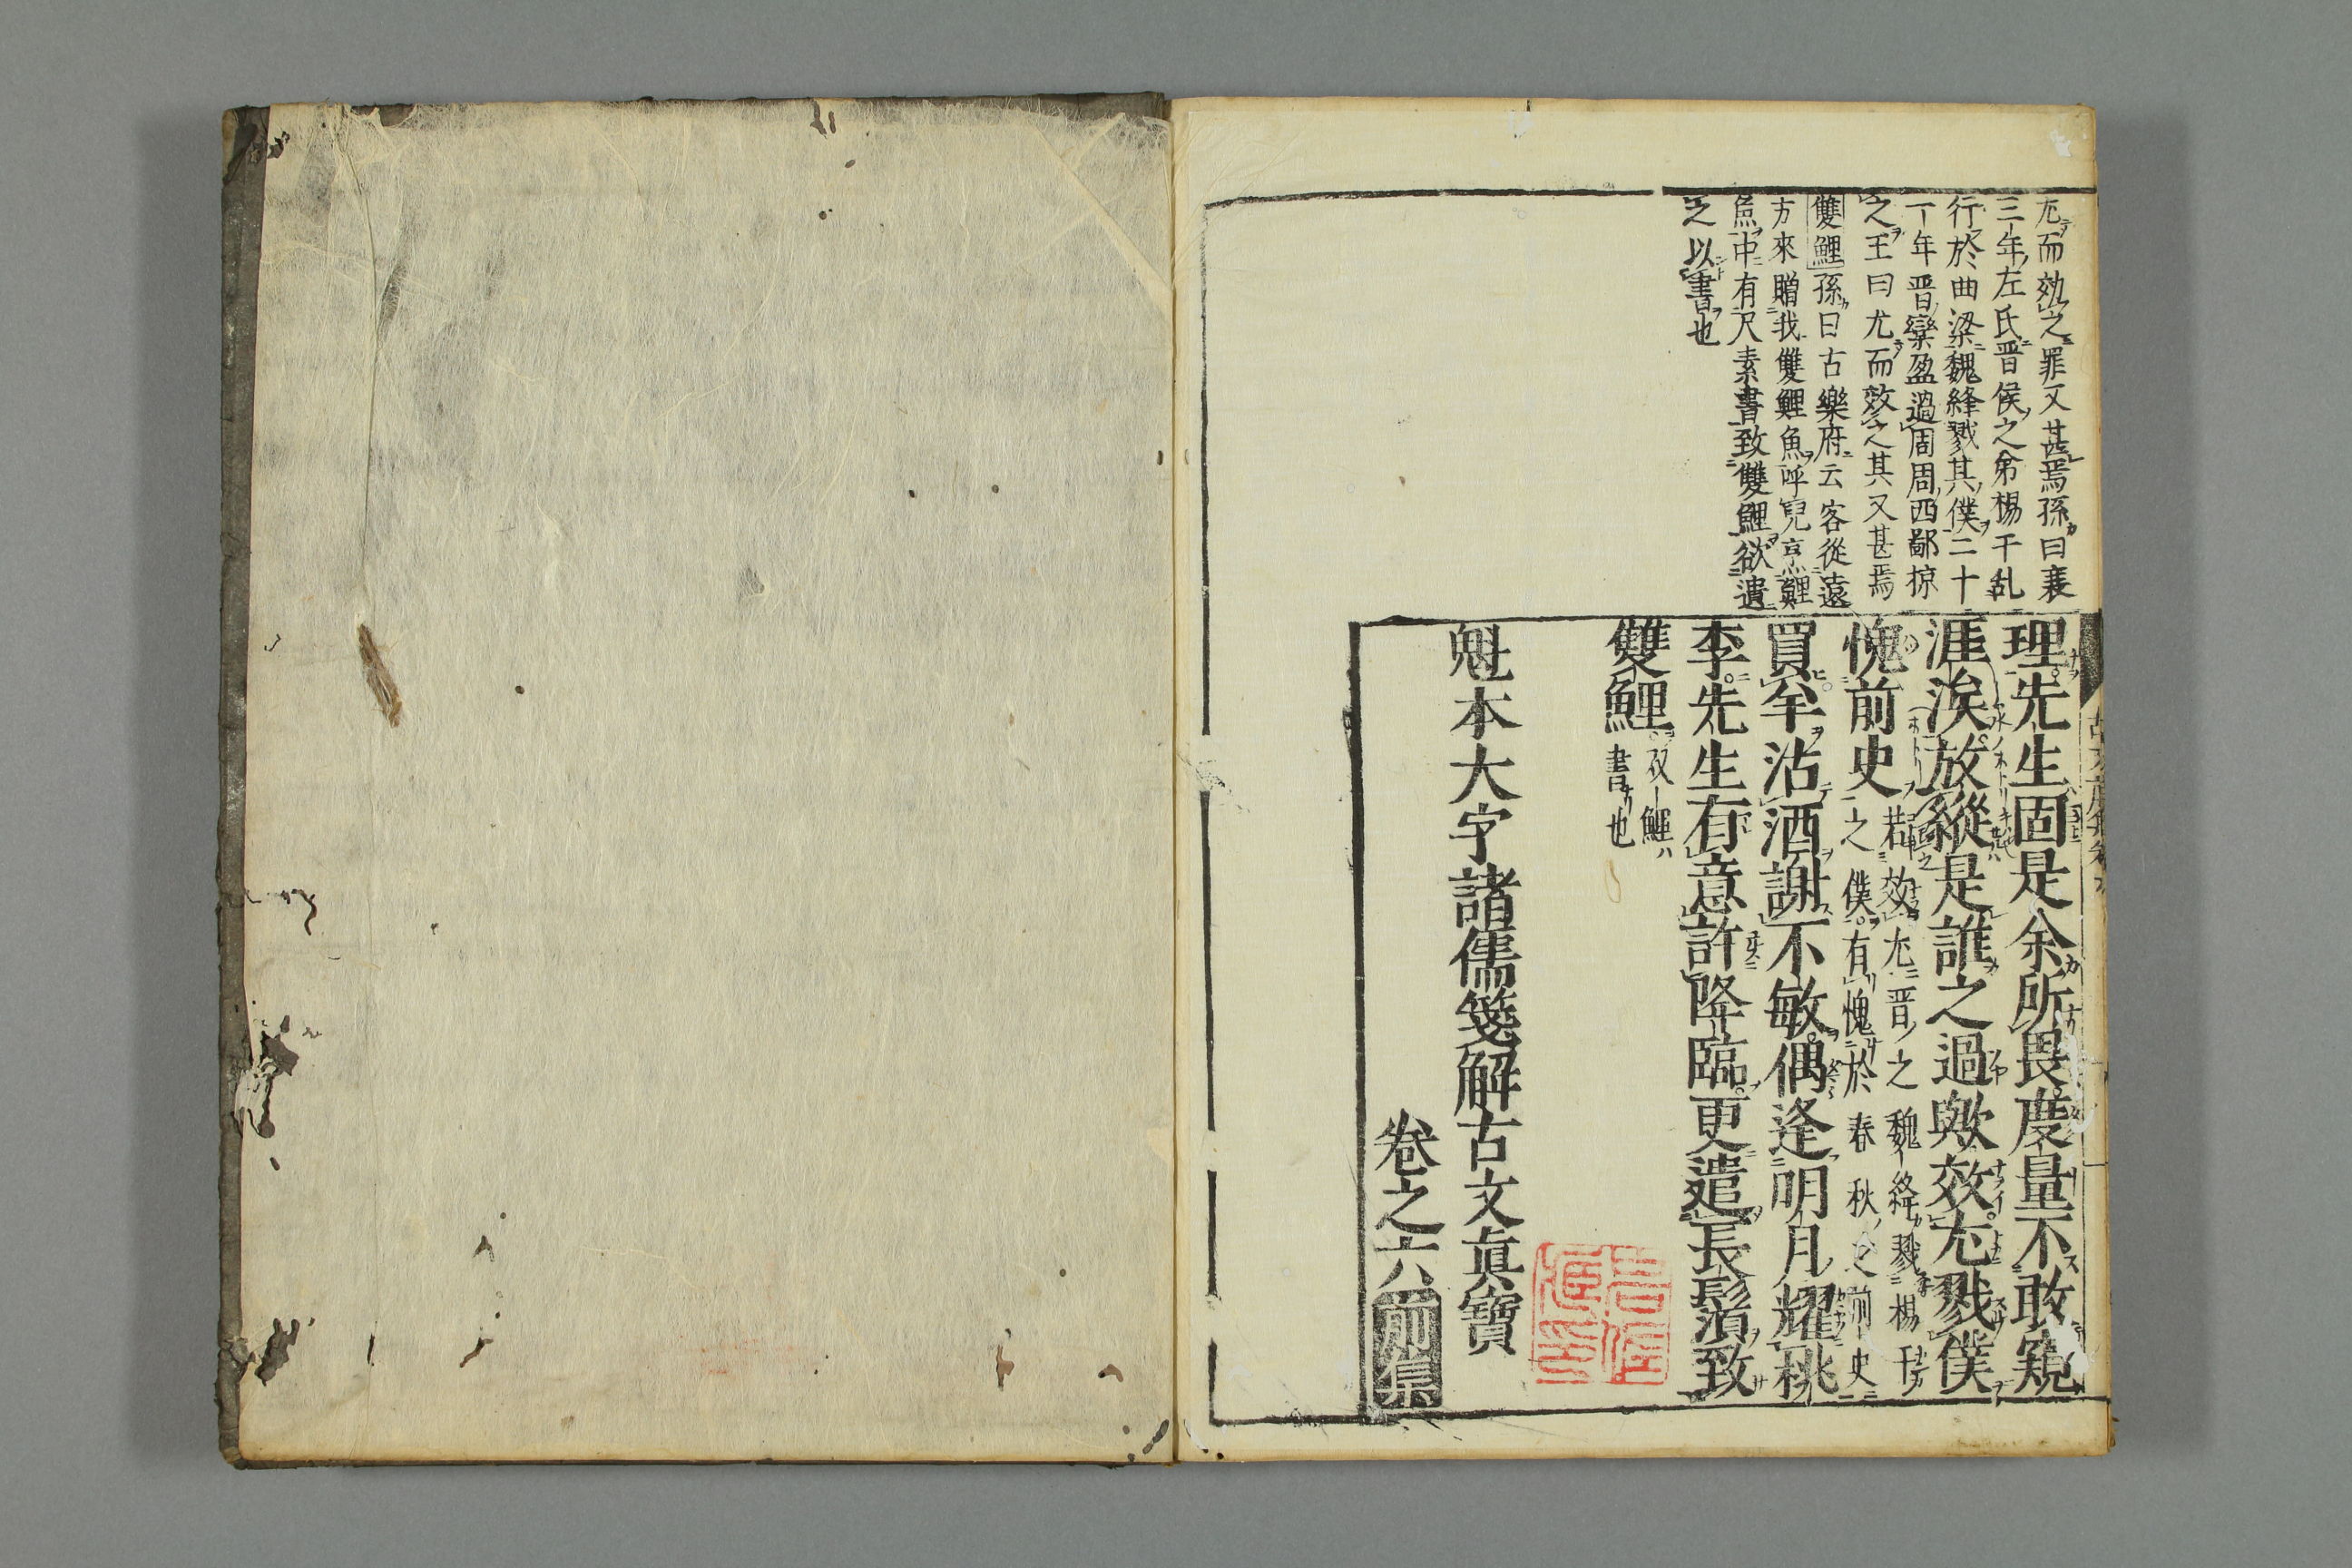 尤而効之罪又甚焉孫曰襄
三年左氏晋侯之弟楊干乱
行於曲梁魏絳戮其僕二十
一年晋欒盈過周周西鄙掠
之王曰尤而效之其又甚焉
雙鯉孫曰古樂府云客從遠
方來贈我雙鯉魚呼兒烹鯉
魚中有尺素書致雙鯉欲遺
之以書也
理先生固是余所畏度量不敢窺
涯涘放縱是誰之過歟效尤戮僕
愧前史若效尤晋之魏絳戮楊干
之僕有愧於春秋之前史
買羊沽酒謝不敏偶逢明月耀桃
李先生有意許降臨更遣長鬚致
雙鯉双鯉ハ
書ナリ也
魁本大字諸儒箋解古文眞寶
卷之六前集